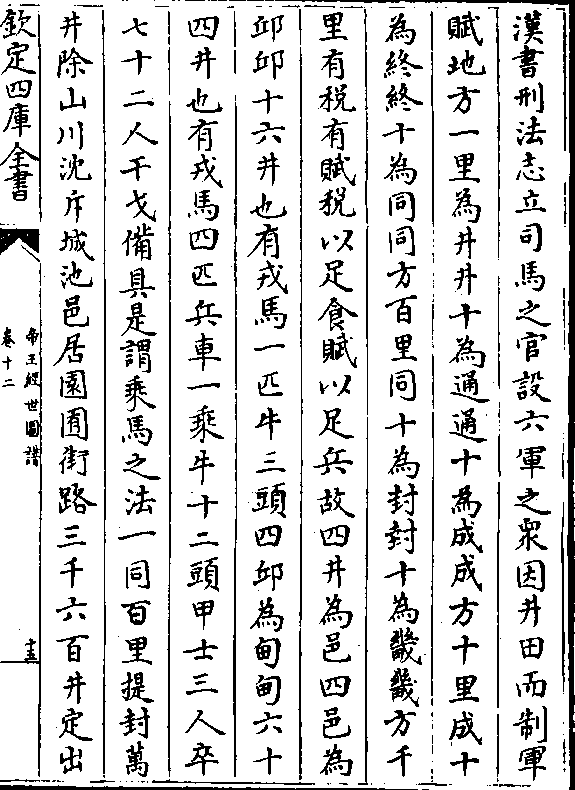 漢書刑法志立司馬之官設六軍之衆因井田而制軍
賦地方一里為井井十為通通十為成成方十里成十
為終終十為同同方百里同十為封封十為畿畿方千
里有稅有賦稅以足食賦以足兵故四井為邑四邑為
邱邱十六井也有戎馬一匹牛三頭四邱為甸甸六十
四井也有戎馬四匹兵車一乘牛十二頭甲士三人卒
七十二人干戈備具是謂乘馬之法一同百里提封萬
井除山川沈斥城池邑居園囿街路三千六百井定出
欽定四庫全書
帝王經世圖譜
卷十二
十五